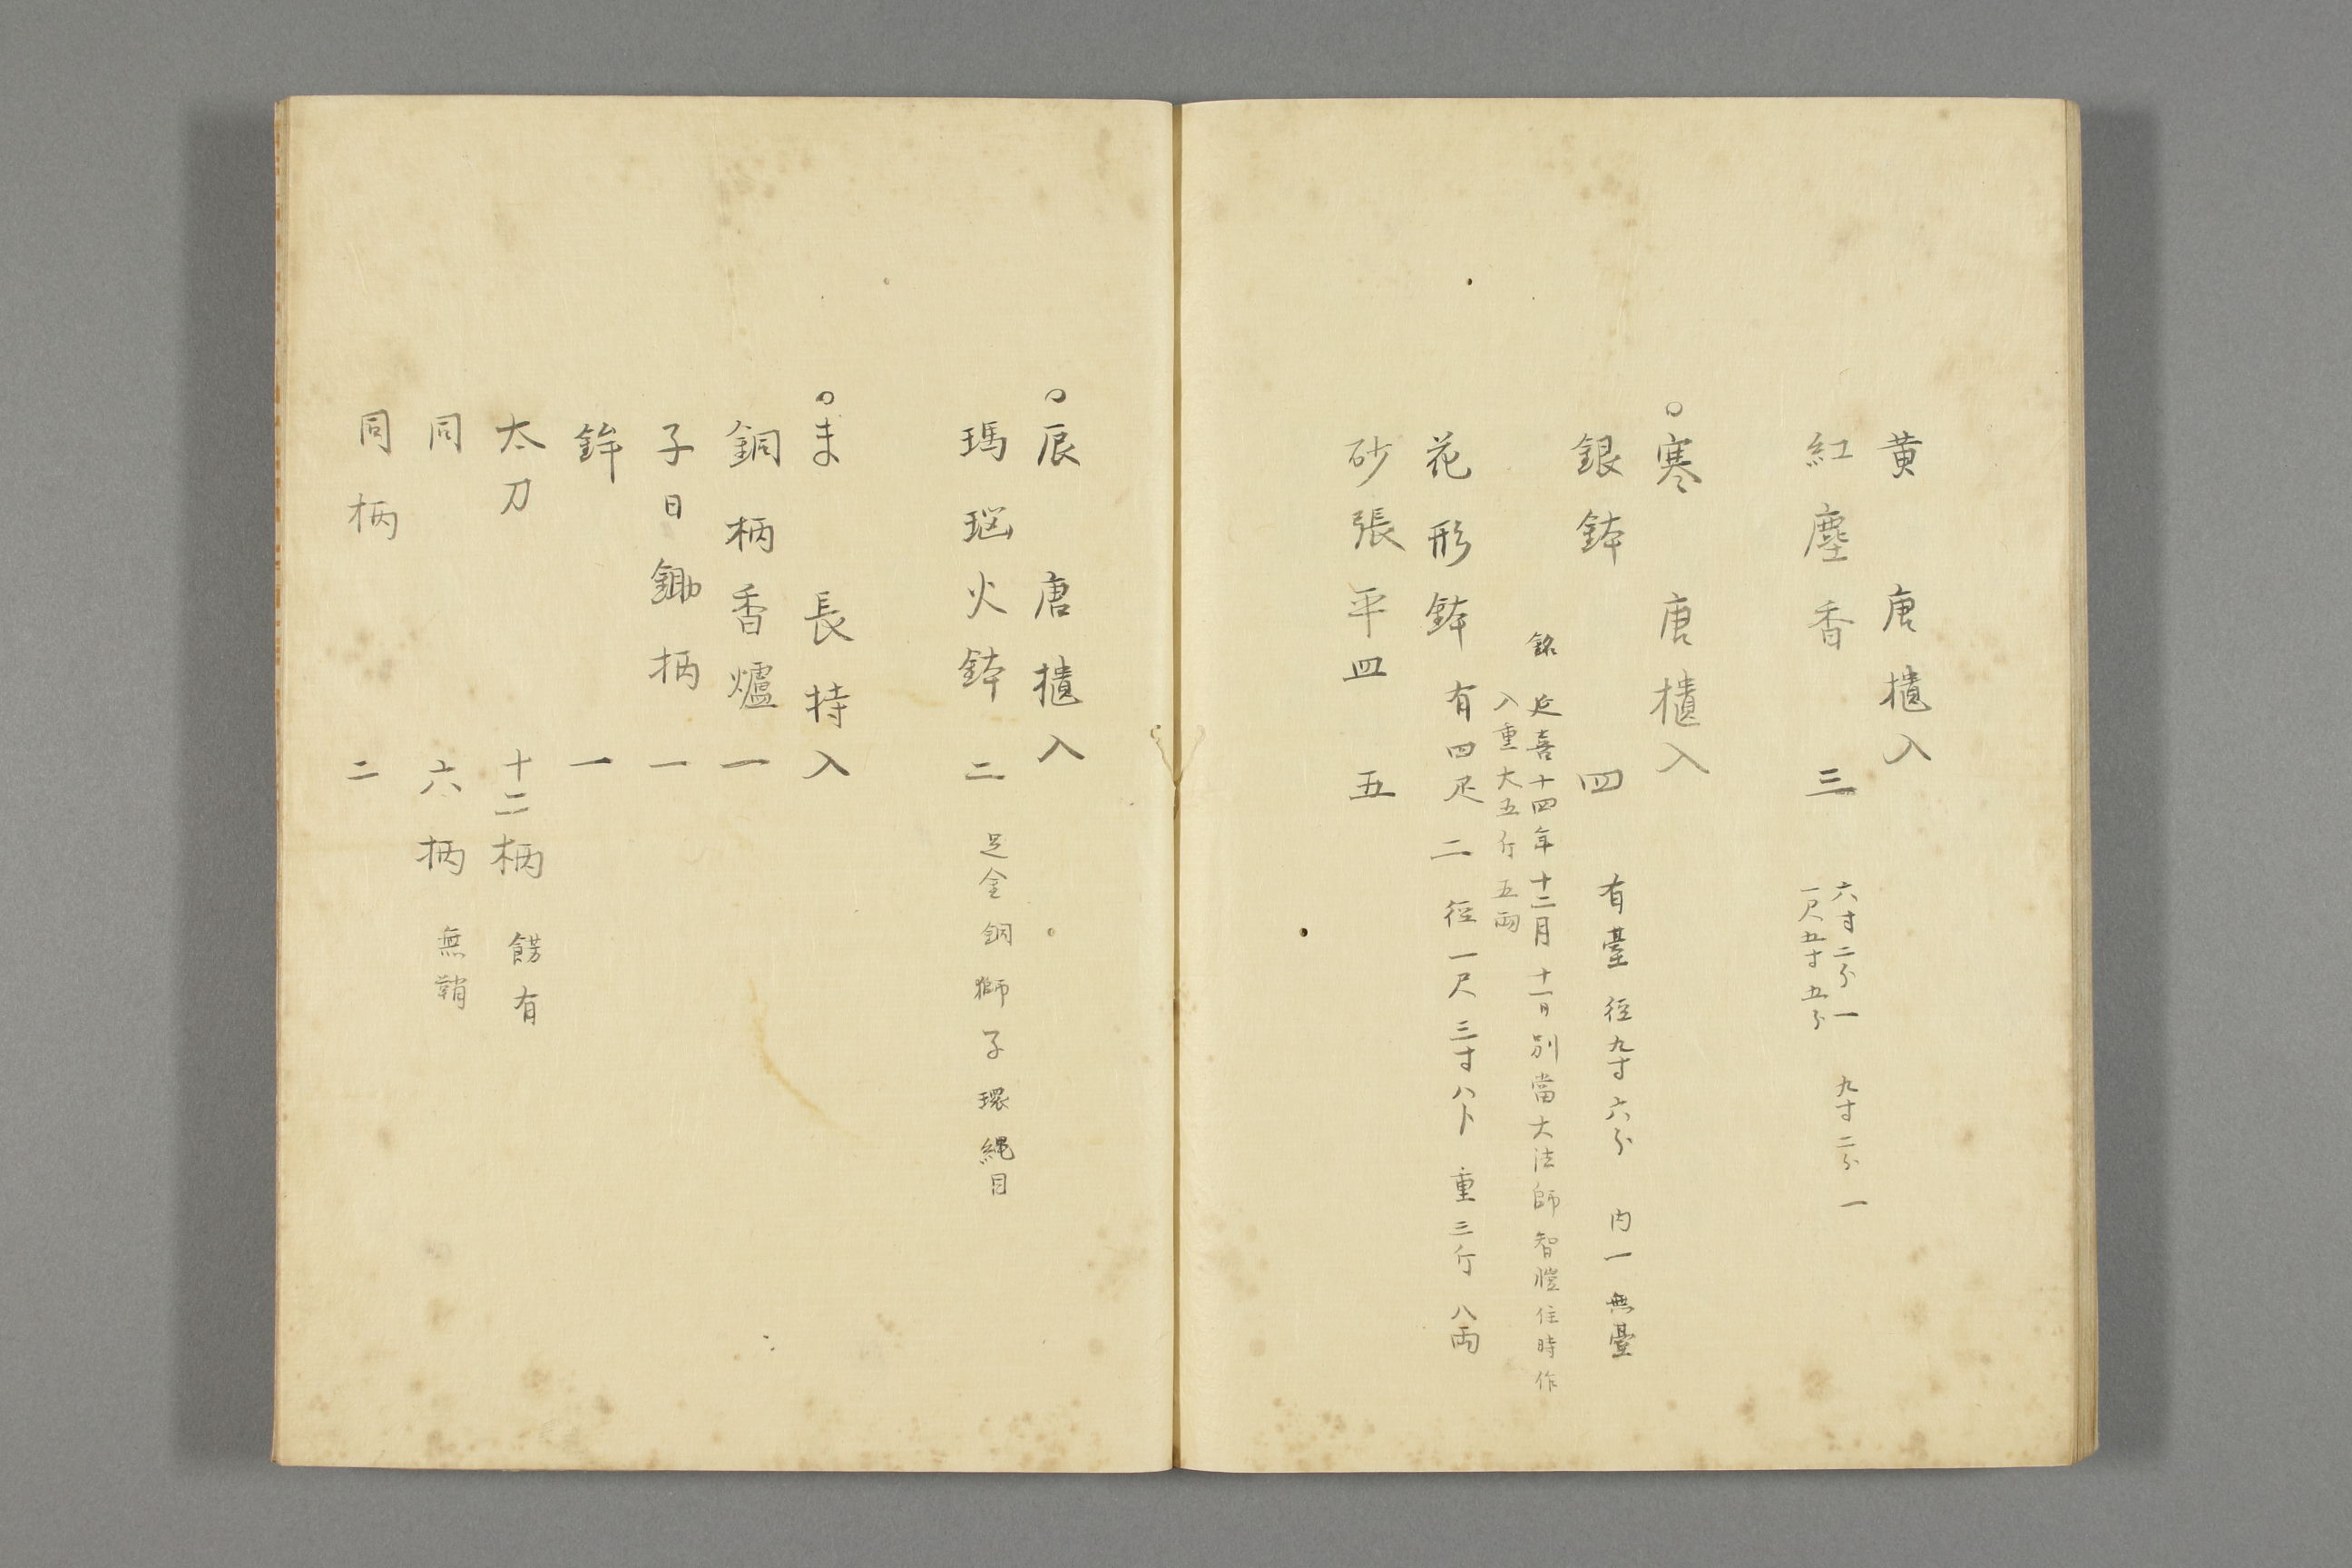 黄　唐櫃入
紅塵香　三　六寸二分一　九寸二分一
一尺五寸五分
○寒　唐櫃入
銀鉢　四　有臺　径九寸六分　内一無臺
銘　延喜十四年十二月十一日別當大法師智愷住時作
入重大五斤五両
花形鉢有四足二　径一尺三寸八卜　重三斤八両
砂張平皿　五
○辰　唐櫃入
瑪瑙火鉢　二　足金銅獅子環縄目
○ま　長持入
銅柄香爐　一
子日鋤柄　一
鉾　一
太刀　十二柄　餝有
同　六柄　無鞘
同柄　二